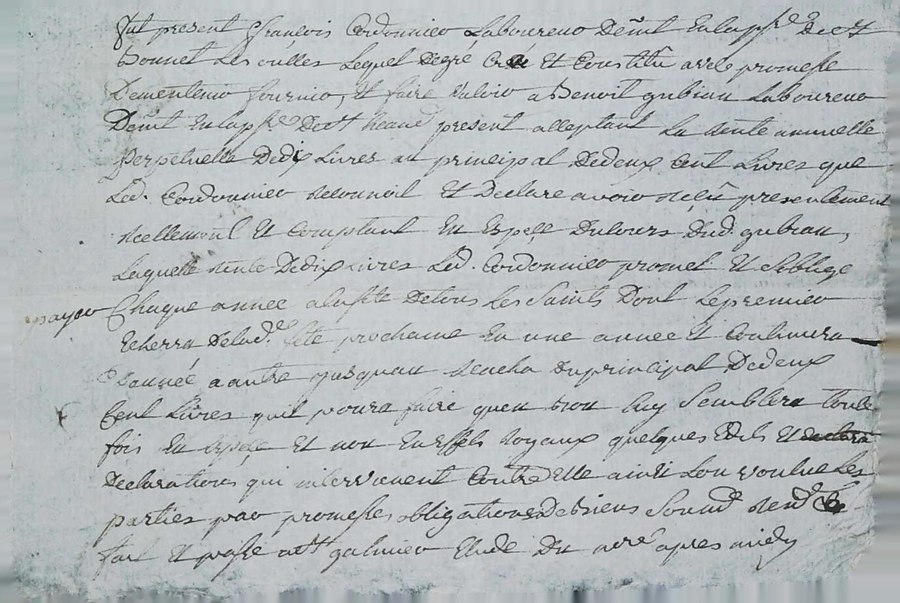 fut present François Cordonnier Laboureur Demt en la psse de st
bonnet Les oulles Lequel de gré Crée et Constitue avec promesse
De mentenir fournir, et faire valoir a Benoit gubian Laboureur
Demt en la psse de st present acceptant La rente annuelle
perpetuelle De dix Livres au principal de deux Cent Livres que
Led. Cordonnier reconnoit et Declare avoir reçû presentement
reellement et Comptant en Espeçe Du Cours Dud. gubian,
Laquelle rente De dix Livres Led. Cordonnier promet et s'oblige
payer Chaque année a la fete De tous Les Saints Dont Le premier
Echerra De lad. fête prochaine en une année et Continuera
D'année a autre jusquau racha Du principal De deux
Cent Livres qu'il poura faire quen bon Luy Semblera toute
fois en espeçe et non en Effets royaux quelques Edits et
Declarations qui interviennent Contre Elle ainsi L'on voulue Les
parties par promesses obligations de biens Soumd renond &c
fait et passé a st galmier Etude Du nore apres midy